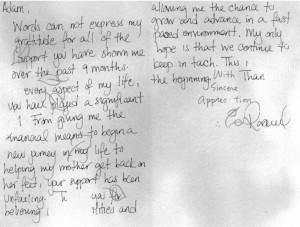 Adam,
Words can not express my
gratitude for all of the
support you have shown me
over the past 9 months.
every aspect of my life,
you have played a significant
From giving me the
financial means to begin a
new journey in my life to
helping my mother get back on
her feet, your support has been
unfailing. Th you for
believing, ilities and
allowing me the chance to
grow and advance in a fast
paced environment. My only
hope is that we continue to
keep in tach. This i
the beginning With Than
Sincere
Apprec tion